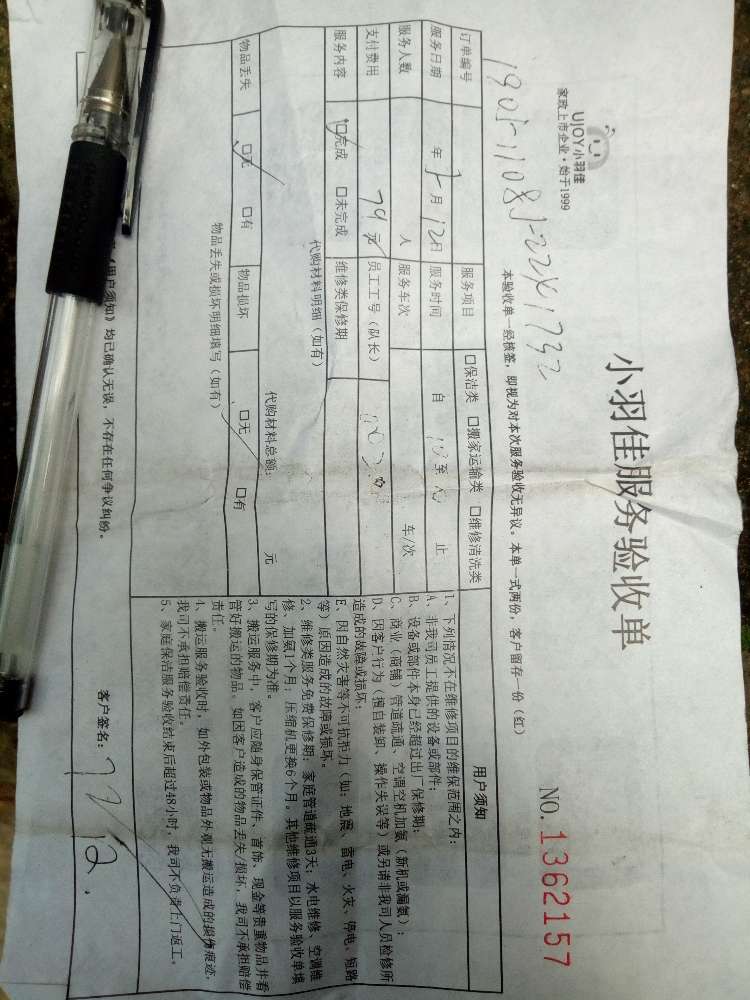 UJOY小羽佳
家政上市企业·始于1999
小羽佳服务验收单
NO.1362157
本验收单一经核签，即视为对本次服务验收无异议。本单一式两份，客户留存一份（红）
订单编号
服务项目 □保洁类 □搬家运输类 □维修清洗类
服务日期 年 7月12日 服务时间 自 至 止
服务人数 人 服务车次 车/次
支付费用 79元 员工工号（队长）
服务内容 □完成 □未完成 维修类保修期
代购材料明细（如有）
代购材料总额： 元
物品丢失 □无 □有 物品损坏 □无 □有
物品丢失或损坏明细填写（如有）
用户须知
1、下列情况不在维修项目的维保范围之内：
A、非我司员工提供的设备或部件；
B、设备或部件本身已经超过出厂保修期；
C、商业（商铺）管道疏通、空调空机加氨（新机或漏氨）；
D、因客户行为（擅自装卸、操作失误等）或另请非我司人员检修所
造成的故障或损坏；
E、因自然灾害等不可抗拒力（如：地震、雷电、火灾、停电、短路
等）原因造成的故障或损坏。
2、维修类服务免费保修期：家庭管道疏通3天；水电维修、空调维
修、加氨1个月；压缩机更换6个月。其他维修项目以服务验收单填
写的保修期为准。
3、搬运服务中，客户应随身保管证件、首饰、现金等贵重物品并看
管好搬运的物品。如因客户造成的物品丢失/损坏，我司不承担赔偿
责任。
4、搬运服务验收时，如外包装或物品外观无搬运造成的损伤痕迹，
我司不承担赔偿责任。
5、家庭保洁服务验收结束后超过48小时，我司不负责上门返工。
《用户须知》均已确认无误，不存在任何争议纠纷。
客户签名：